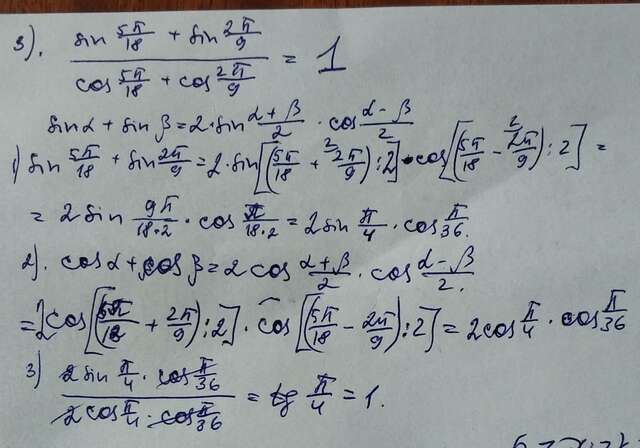 3). (sin 5π/18 + sin 2π/9) / (cos 5π/18 + cos 2π/9) = 1
sin α + sin β = 2 · sin (α + β)/2 · cos (α - β)/2
1) sin 5π/18 + sin 2π/9 = 2 · sin[(5π/18 + ²2π/9) : 2] · cos[(5π/18 - ²2π/9) : 2] =
= 2 sin 9π/18·2 · cos π/18·2 = 2 sin π/4 · cos π/36.
2). cos α + cos β = 2 cos (α + β)/2 · cos (α - β)/2.
= 2 cos[(5π/18 + 2π/9) : 2] · cos[(5π/18 - 2π/9) : 2] = 2 cos π/4 · cos π/36
3) (2 sin π/4 · cos π/36) / (2 cos π/4 · cos π/36) = tg π/4 = 1.